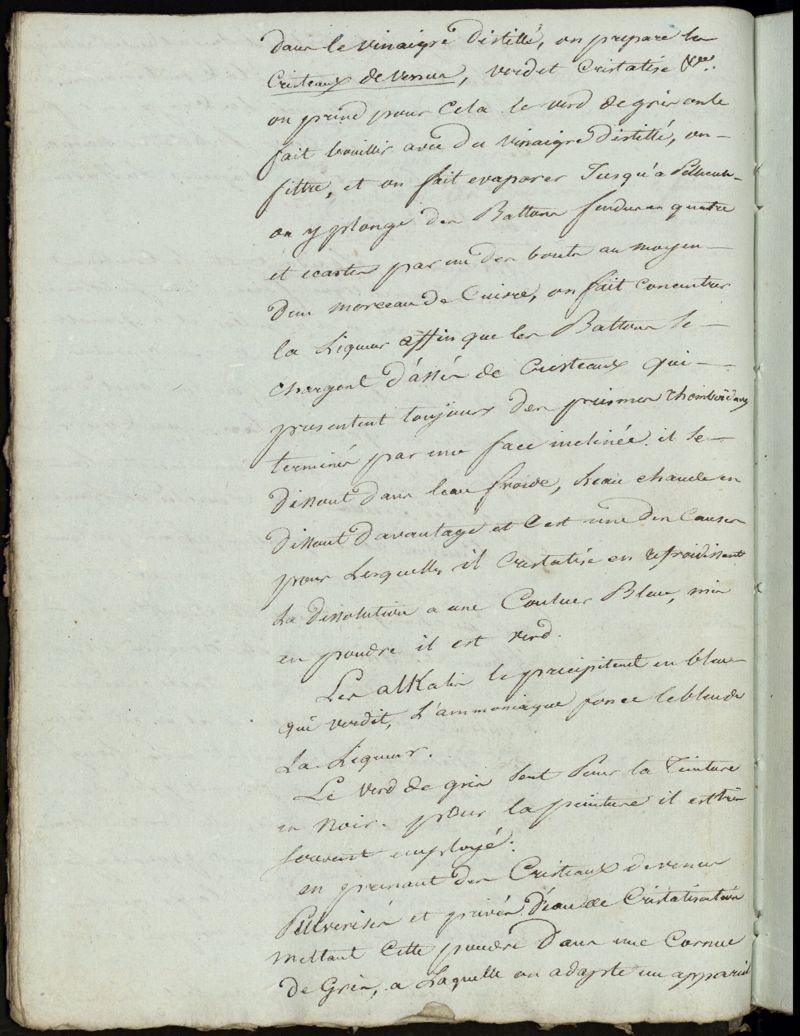 dans le vinaigre distillé, on prepare les
Cristeaux de venus, verdet Cristalisé &a.
on prend pour cela le verd de gris on le
fait bouillir avec du vinaigre distillé, on
filtre, et on fait evaporer Jusqu'a Pellicule
on y plonge des Battons fendus en quatre
et ecartés par un des bouts au moyen
d'un morceau de Cuivre, on fait concentrer
la Liqueur affin que les Battons se
chargent d'assés de Cristeaux qui
presentent toujours des prismes rhomboïdaux
terminés par une face inclinée. il se
dissout dans leau froide, leau chaude en
dissout davantage et C'est une des Causes
pour Lesquelles il Cristalise en refroidissant
La dissolution a une Couleur Bleue, mis
en poudre il est verd.
Les alKalis le precipitent en bleu
qui verdit, L'ammoniaque fonce le bleu de
La Liqueur.
Le verd de gris sert Pour la Teinture
en noir. pour la peinture il est tres
souvent employé.
en prenant des Cristeaux de venus
Pulverisés et privés D'eau de Cristalisation
mettant Cette poudre Dans une Cornue
de Grès, a Laquelle on adapte un appareil